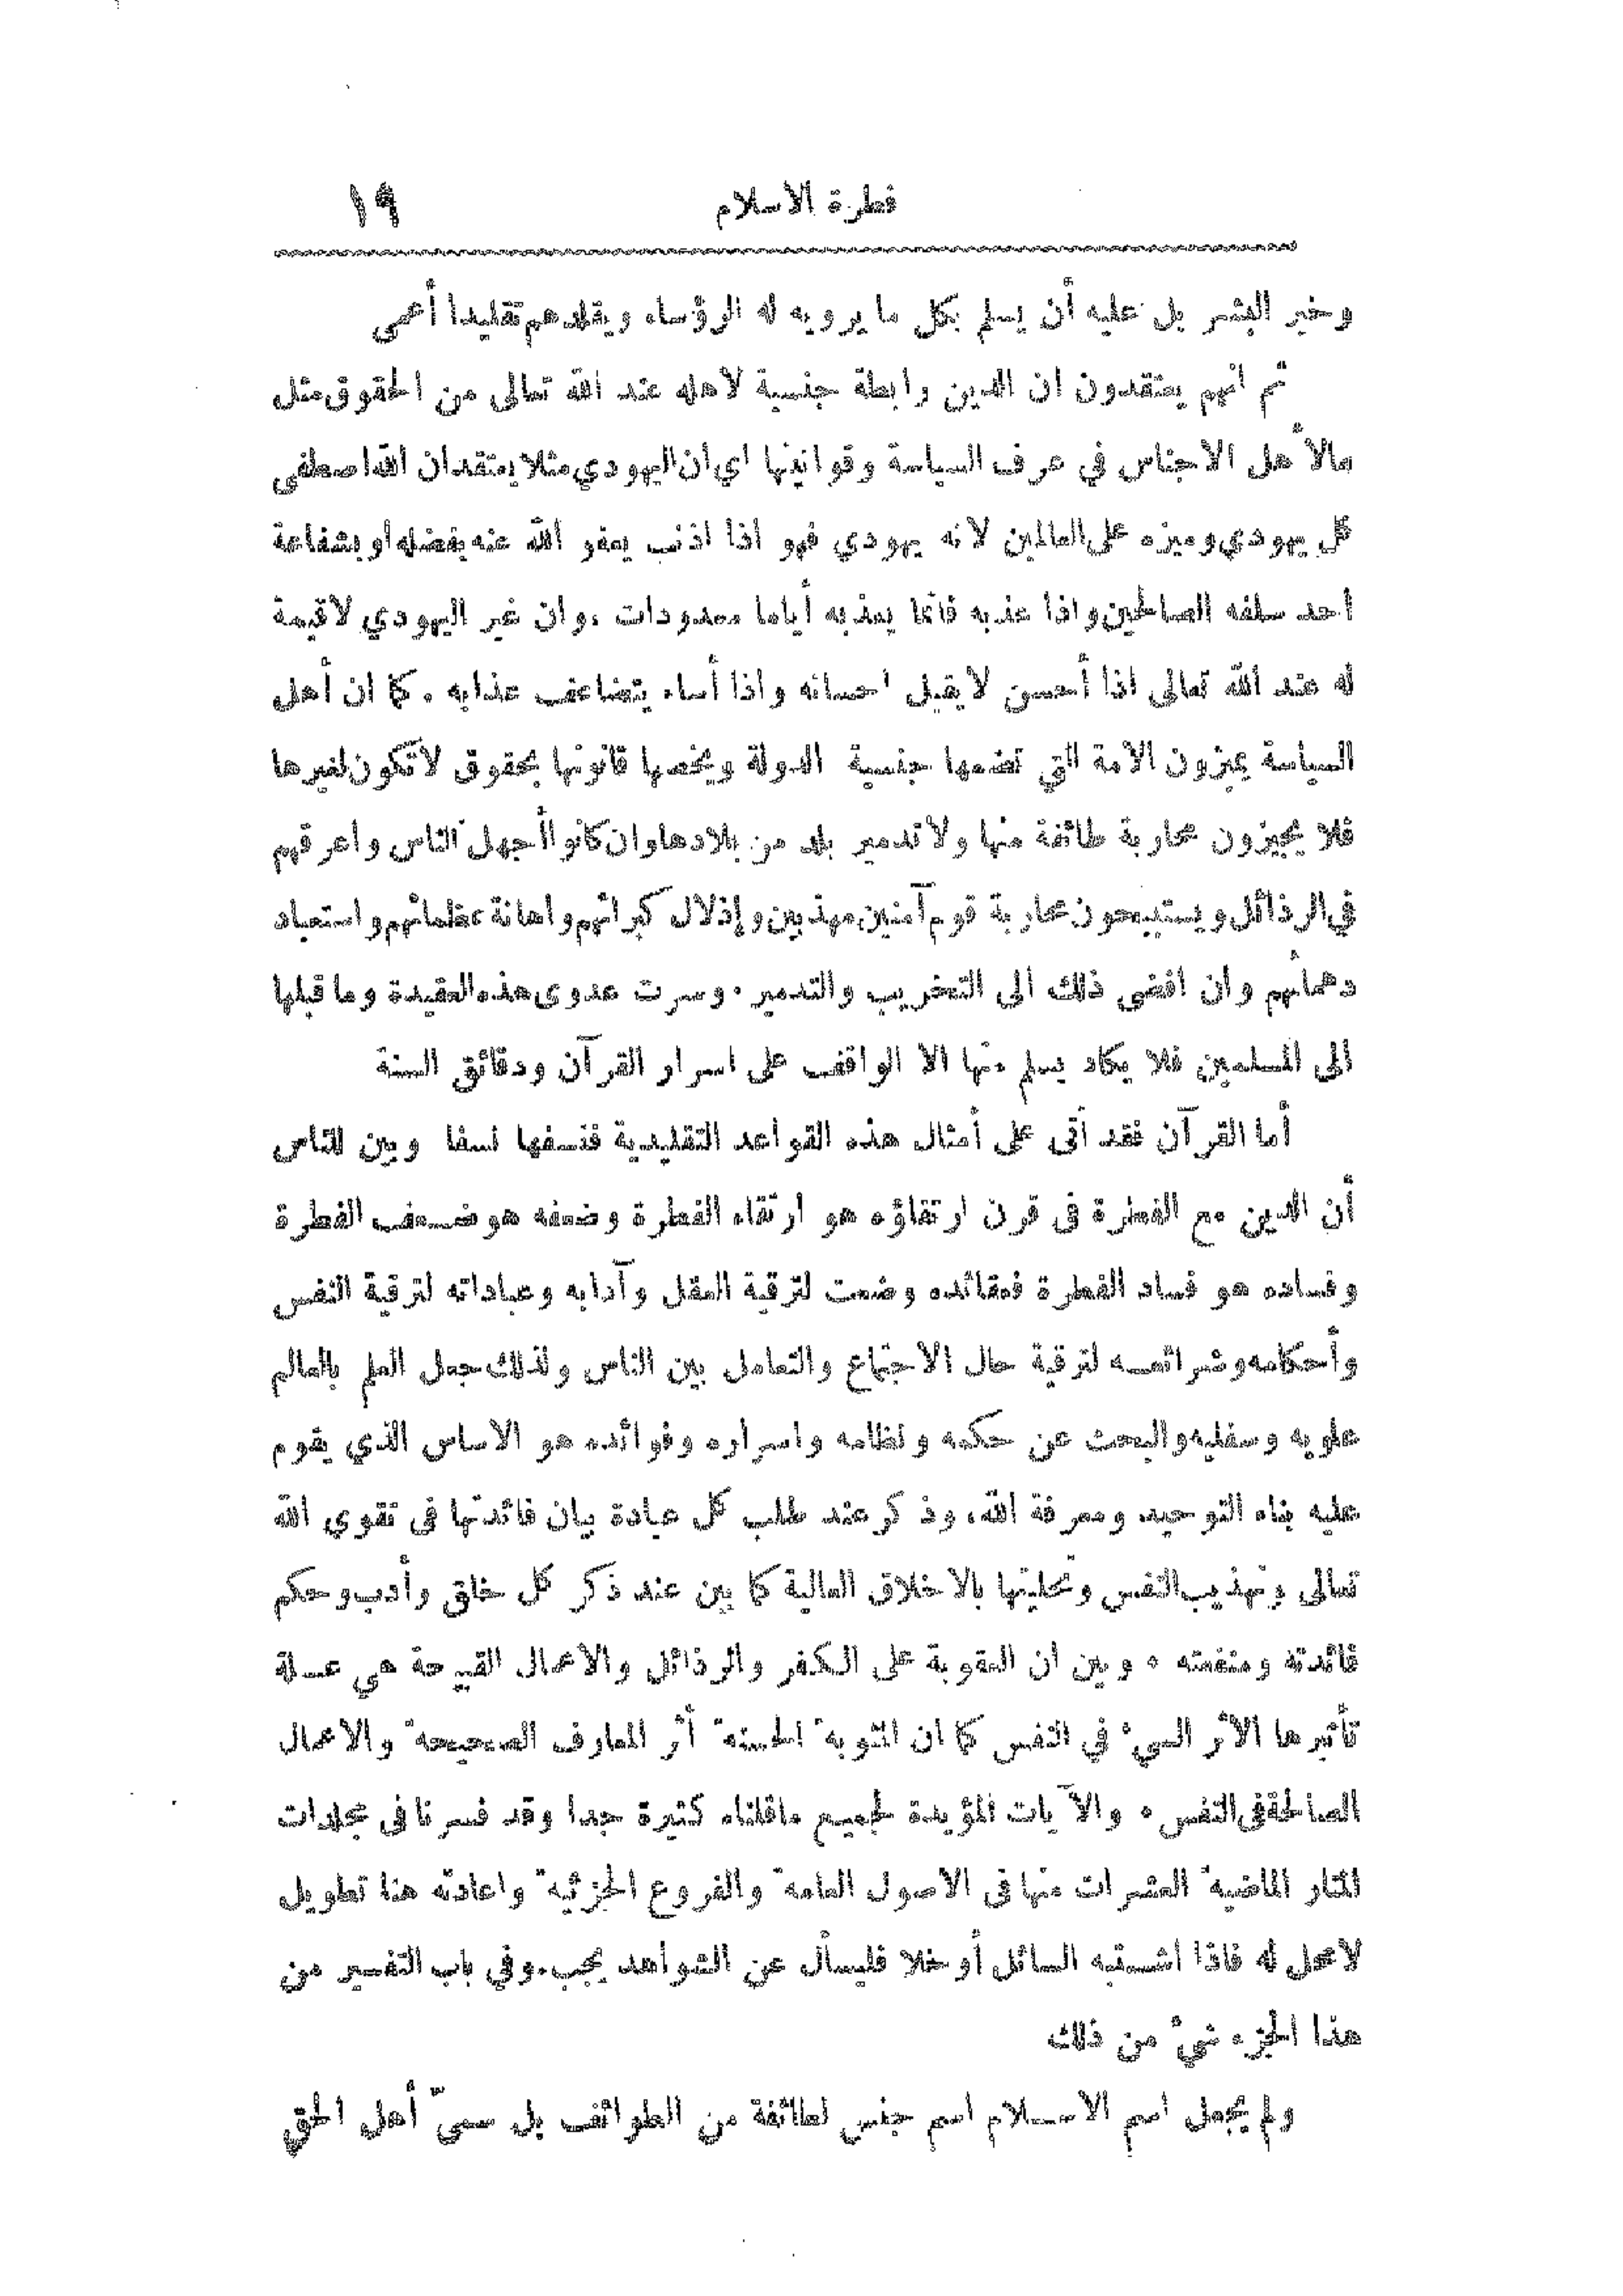 فطرة الاسلام ١٩
وخير البشر بل عليه أن يسلم بكل ما يرويه له الرؤساء ويقلدهم تقليدا أعمى
ثم انهم يعتقدون ان الدين رابطة جنسية لاهله عند الله تعالى من الحقوق مثل
مالأهل الاجناس في عرف السياسة وقوانينها اي ان اليهودي مثلا يعتقد ان الله اصطفى
كل يهودي وميزه على العالمين لانه يهودي فهو اذا اذنب يعفو الله عنه بفضله أو بشفاعة
احد سلفه الصالحين واذا عذبه فانما يعذبه أياما معدودات ، وان غير اليهودي لا قيمة
له عند الله تعالى اذا أحسن لا يقبل احسانه واذا أساء يتضاعف عذابه . كما ان أهل
السياسة يميزون الامة التي تضمها جنسية الدولة ويخصها قانونها بحقوق لا تكون لغيرها
فلا يجيزون محاربة طائفة منها ولا تدمير بلد من بلادها وان كانوا أجهل الناس واعرقهم
في الرذائل ويستبيحون محاربة قوم آمنين مهذبين وإذلال كبرائهم واهانة عظمائهم واستعباد
دهمائهم وان افضى ذلك الى التخريب والتدمير . وسرت عدوى هذه العقيدة وما قبلها
الى المسلمين فلا يكاد يسلم منها الا الواقف على اسرار القرآن ودقائق السنة
أما القرآن فقد أتى على أمثال هذه القواعد التقليدية فنسفها نسفا وبين للناس
أن الدين مع الفطرة في قرن ارتقاؤه هو ارتقاء الفطرة وضعفه هو ضعف الفطرة
وفساده هو فساد الفطرة فعقائده وضعت لترقية العقل وآدابه وعباداته لترقية النفس
وأحكامه وشرائعه لترقية حال الاجتماع والتعامل بين الناس ولذلك جعل العلم بالعالم
علويه وسفليه والبحث عن حكمه ونظامه واسراره وفوائده هو الاساس الذي يقوم
عليه بناء التوحيد ومعرفة الله ، وذكر عند طلب كل عبادة بيان فائدتها في تقوى الله
تعالى وتهذيب النفس وتحليتها بالاخلاق العالية كما بين عند ذكر كل خلق وأدب وحكم
فائدته ومنفعته . وبين ان العقوبة على الكفر والرذائل والاعمال القبيحة هي علة
تأثيرها الاثر السيئ في النفس كما ان المثوبة الحسنة أثر المعارف الصحيحة والاعمال
الصالحة في النفس . والآيات المؤيدة لجميع ماقلناه كثيرة جدا وقد فسرنا في مجلدات
المنار الماضية العشرات منها في الاصول العامة والفروع الجزئية واعادته هنا تطويل
لا محل له فاذا اشتبه السائل أوخلا فليسأل عن الشواهد يجب . وفي باب التفسير من
هذا الجزء شيئ من ذلك
ولم يجعل اسم الاسلام اسم جنس لطائفة من الطوائف بل سمىّ أهل الحق